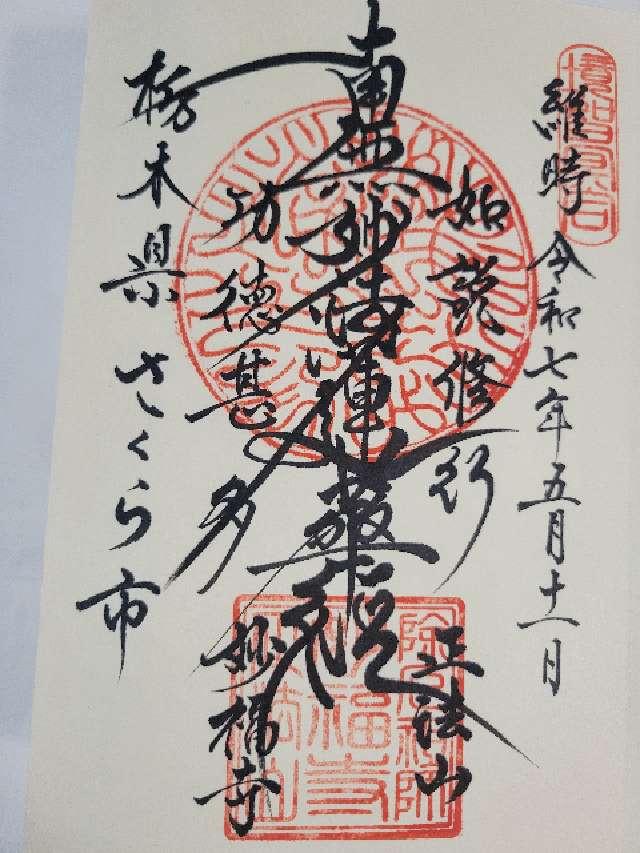 維時 令和七年五月十一日
如説修行
正法山
南無妙法蓮華経
功徳甚多
妙福寺
栃木県さくら市